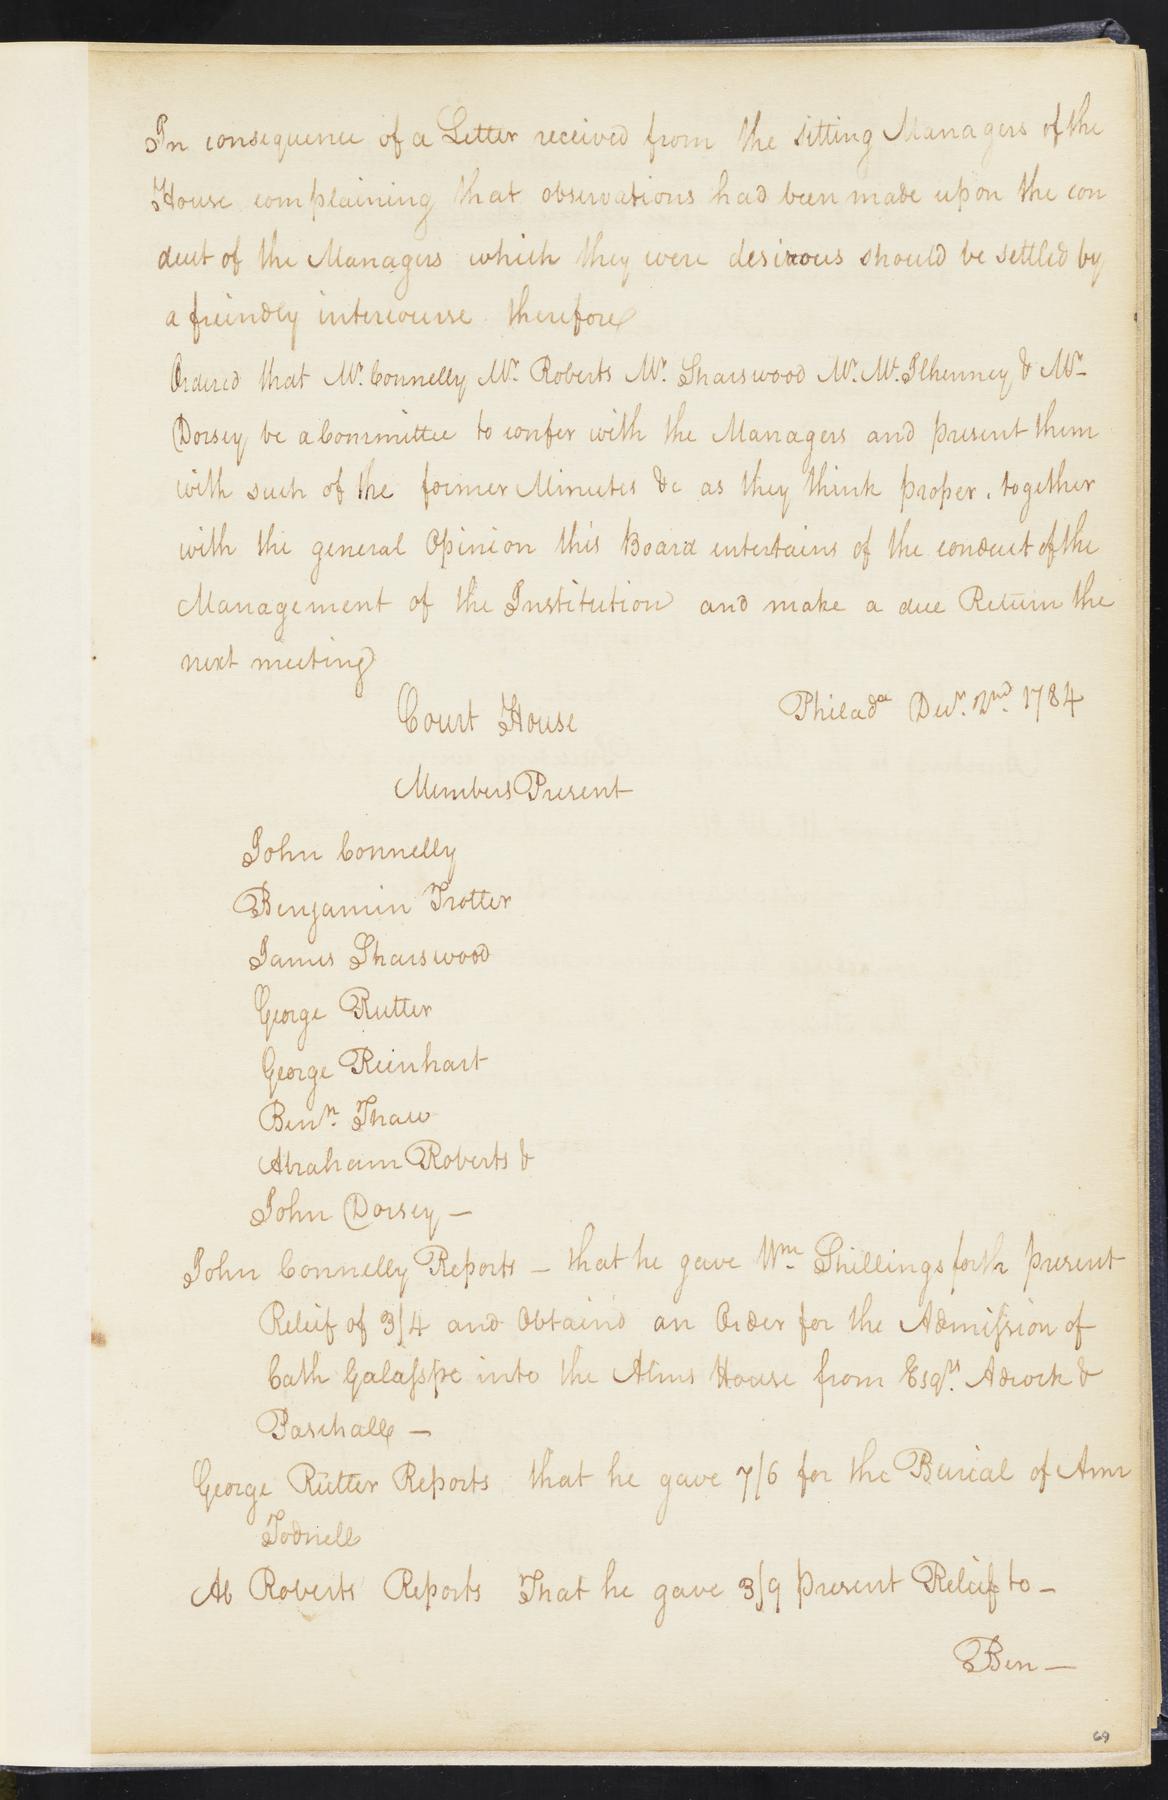 In consequence of a Letter received from the sitting Managers of the
House complaining that observations had been made upon the con
duct of the Managers which they were desirous should be settled by
a friendly intercourse therefore
Ordered that Mr. Connelly Mr. Roberts Mr. Sharswood Mr. Mc.Ilhenney & Mr.
Dorsey be a Committee to confer with the Managers and present them
with such of the former Minutes &c as they think proper, together
with the general Opinion this Board entertains of the conduct of the
Management of the Institution and make a due Return the
next meeting
Court House Philada Decr. 2nd. 1784
Members Present
John Connelly
Benjamin Trotter
James Sharswood
George Rutter
George Reinhart
Benn. Thaw
Abraham Roberts &
John Dorsey —
John Connelly Reports — that he gave Wm. Shillingsforth present
Relief of 3/4 and Obtain'd an Order for the Admission of
Cath Galasspe into the Alms House from Esqrs. Adcock &
Paschall —
George Rutter Reports that he gave 7/6 for the Burial of Ann
Todnell
Ab Roberts Reports That he gave 3/9 present Relief to —
Ben —
69